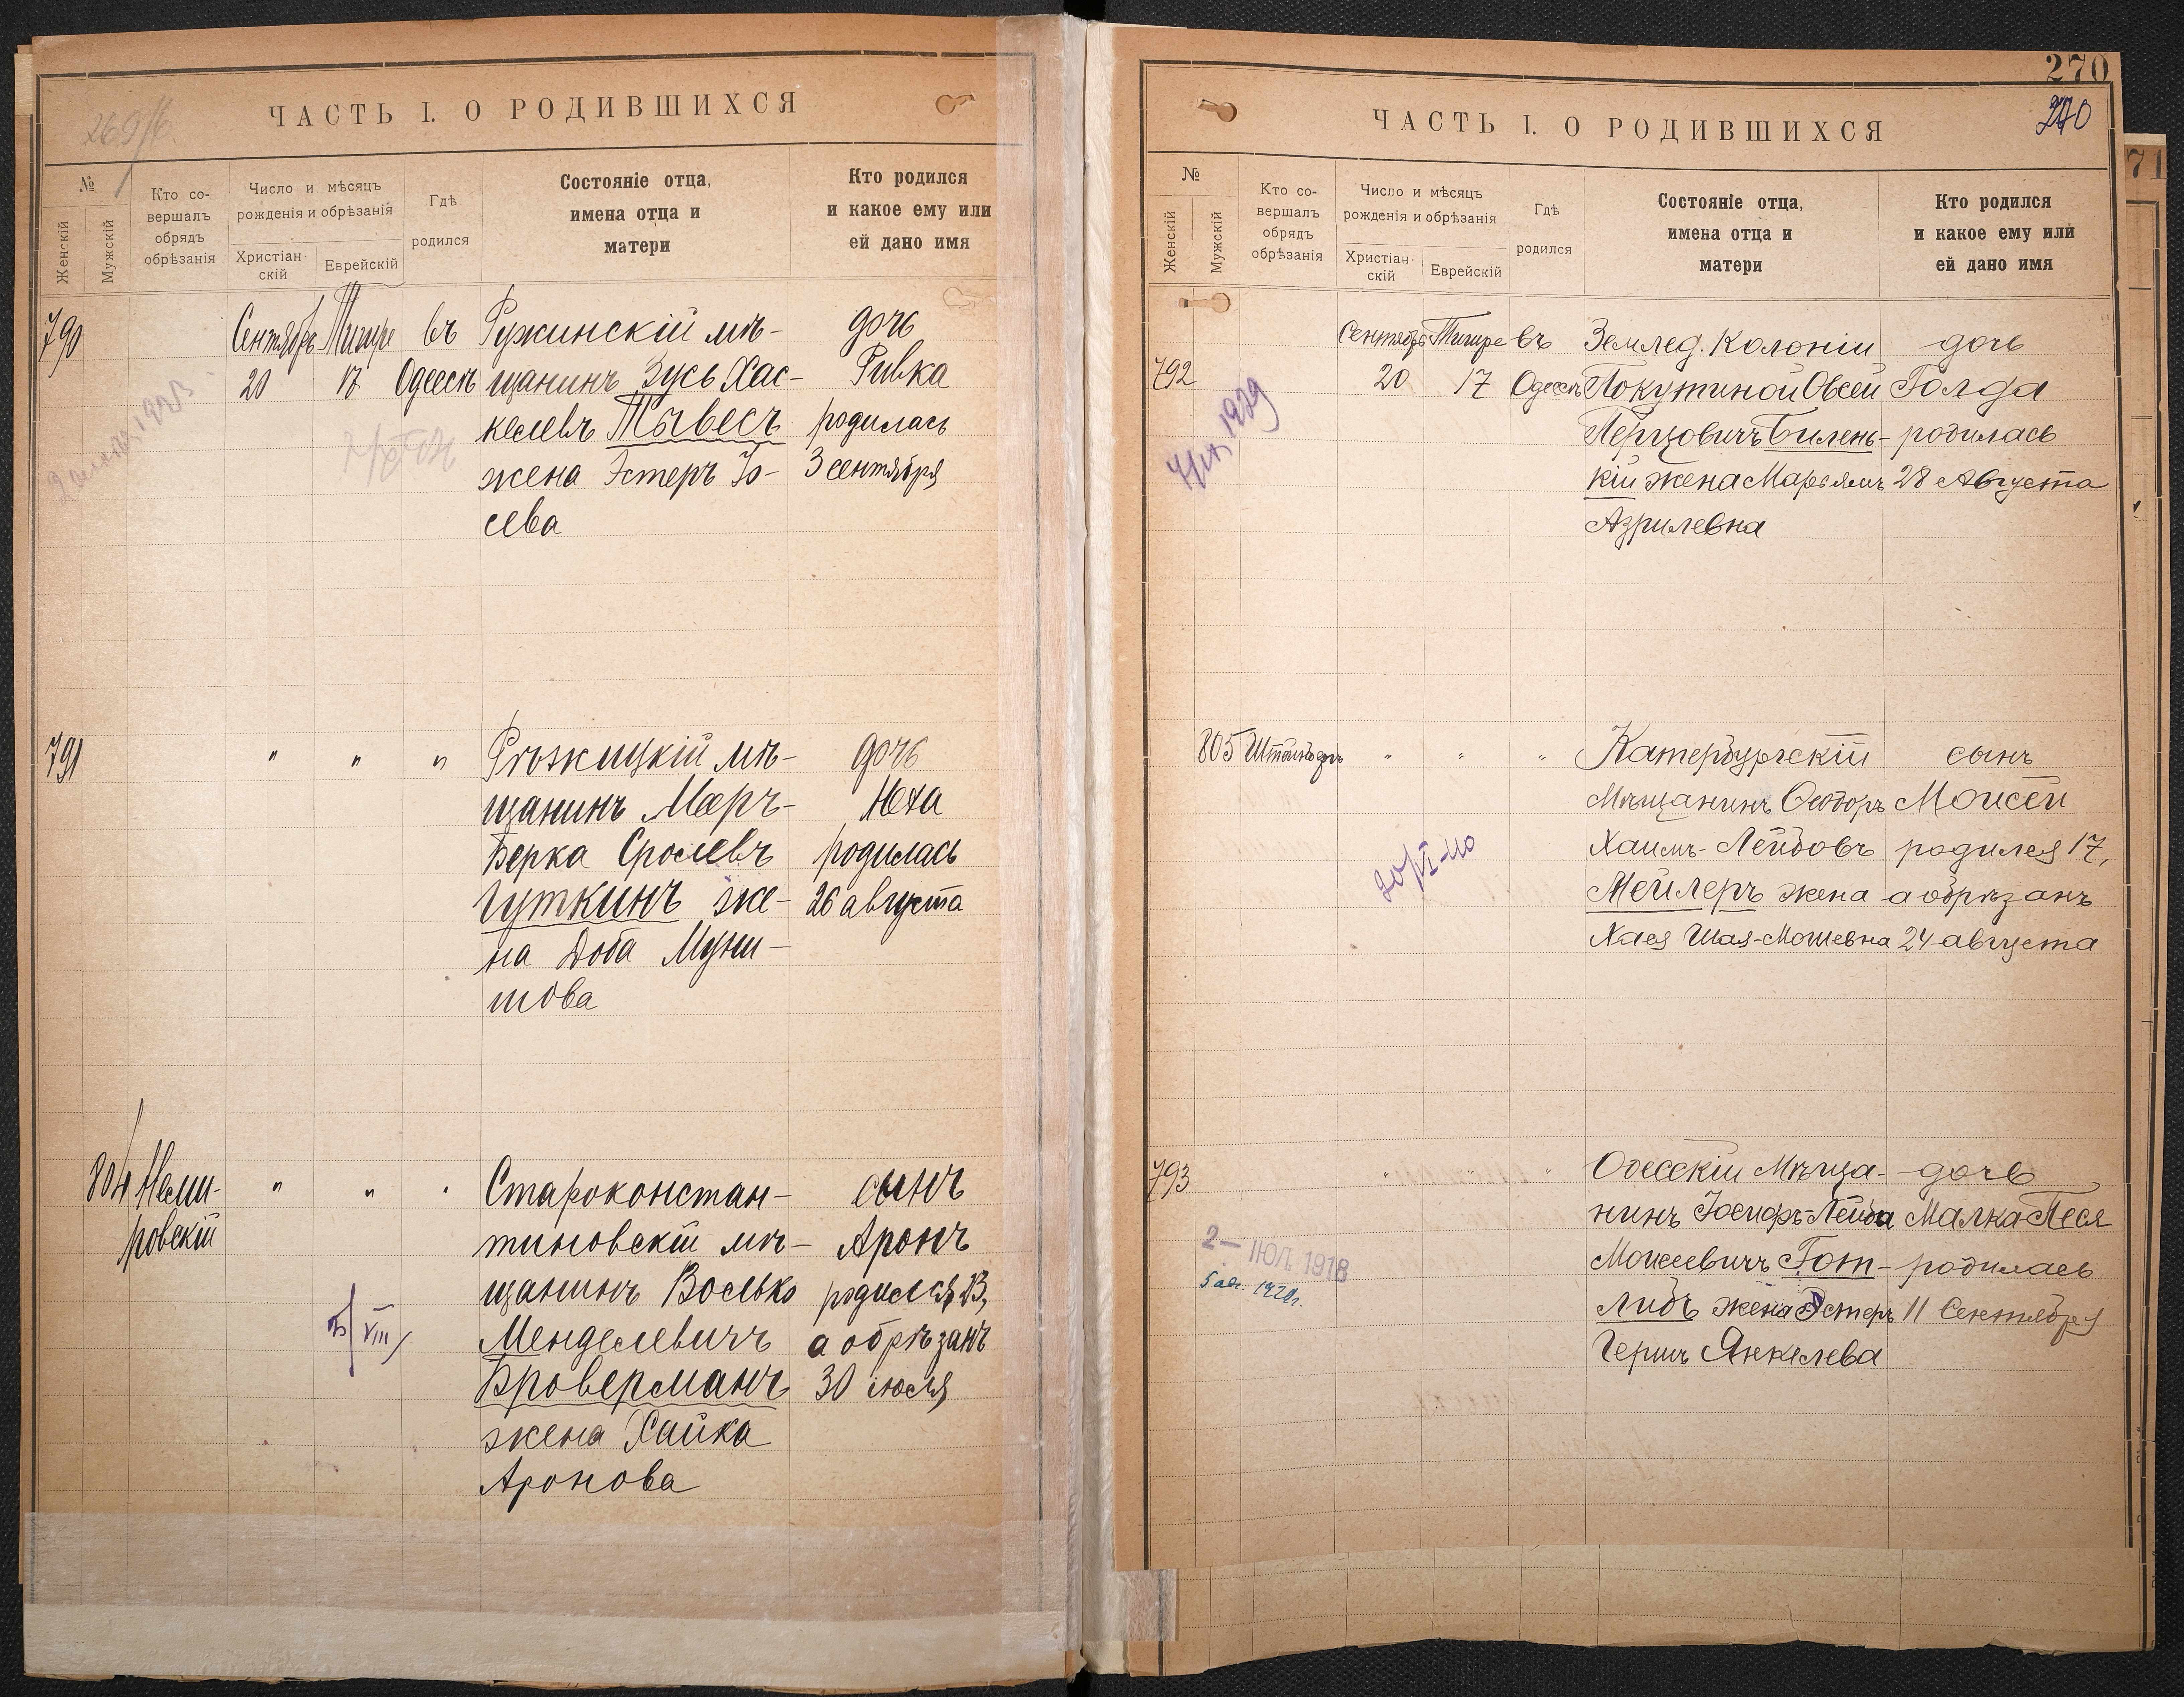 ЧАСТЬ I. О РОДИВШИХСЯ
№
Женскій
Мужскій
Кто со-
вершалъ
обрядъ
обрѣзанія
Число и мѣсяцъ
рожденія и обрѣзанія
Христіан-
скій
Еврейскій
Гдѣ
родился
Состояніе отца,
имена отца и
матери
Кто родился
и какое ему или
ей дано имя
790
Сентябрь
20
Тишре
17
въ
Одессѣ
Ружинскій мѣ-
щанинъ Зусь Хас-
келевъ Тывесъ
жена Эстеръ Іо-
сева
дочь
Ривка
родилась
3 сентября
791
" " "
Рѣжицкій мѣ-
щанинъ Меръ-
Берка Сролевъ
Гуткинъ же-
на Доба Муни-
шова
дочь
Юха
родилась
26 августа
804
Неми-
ровскій
" " "
Староконстан-
тиновскій мѣ-
щанинъ Волько
Менделевичъ
Броверманъ
жена Хайка
Аронова
сынъ
Аронъ
родился 23,
а обрѣзанъ
30 іюля
270
270
ЧАСТЬ I. О РОДИВШИХСЯ
№
Женскій
Мужскій
Кто со-
вершалъ
обрядъ
обрѣзанія
Число и мѣсяцъ
рожденія и обрѣзанія
Христіан-
скій
Еврейскій
Гдѣ
родился
Состояніе отца,
имена отца и
матери
Кто родился
и какое ему или
ей дано имя
792
Сентябрь
20
Тишре
17
въ
Одессѣ
Землед. Колоніи
Покутиной Овсей
Перцовичъ Билень-
кій жена Марьямъ
Азрилевна
дочь
Голда
родилась
28 Августа
805
" " "
Катербургскій
Мѣщанинъ
Хаимъ-Лейбовъ
Мейлеръ жена
Хася Шая-Мошевна
сынъ
Моисей
родился 17,
а обрѣзанъ
24 августа
793
" " "
Одесскій Мѣща-
нинъ Іосифъ-Лейба
Моисеевичъ Гот-
либъ жена Эстеръ
Янкелева
дочь
Малка-Песя
родилась
11 Сентября
2 – ІЮЛ. 1918
71